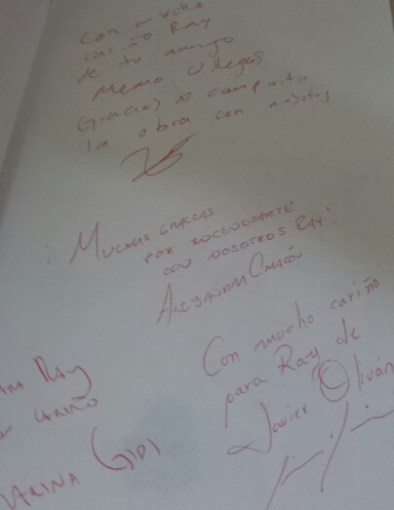 Con mucho
cariño Ray
de tu amigo
Memo Villegas
Gracias x compartir
la obra con nosotros
¡Muchas gracias
por
con nosotros Ray!
Alejandra
Con mucho cariño
para Ray de
Javier Oliván
Ray
cariño
Gidi